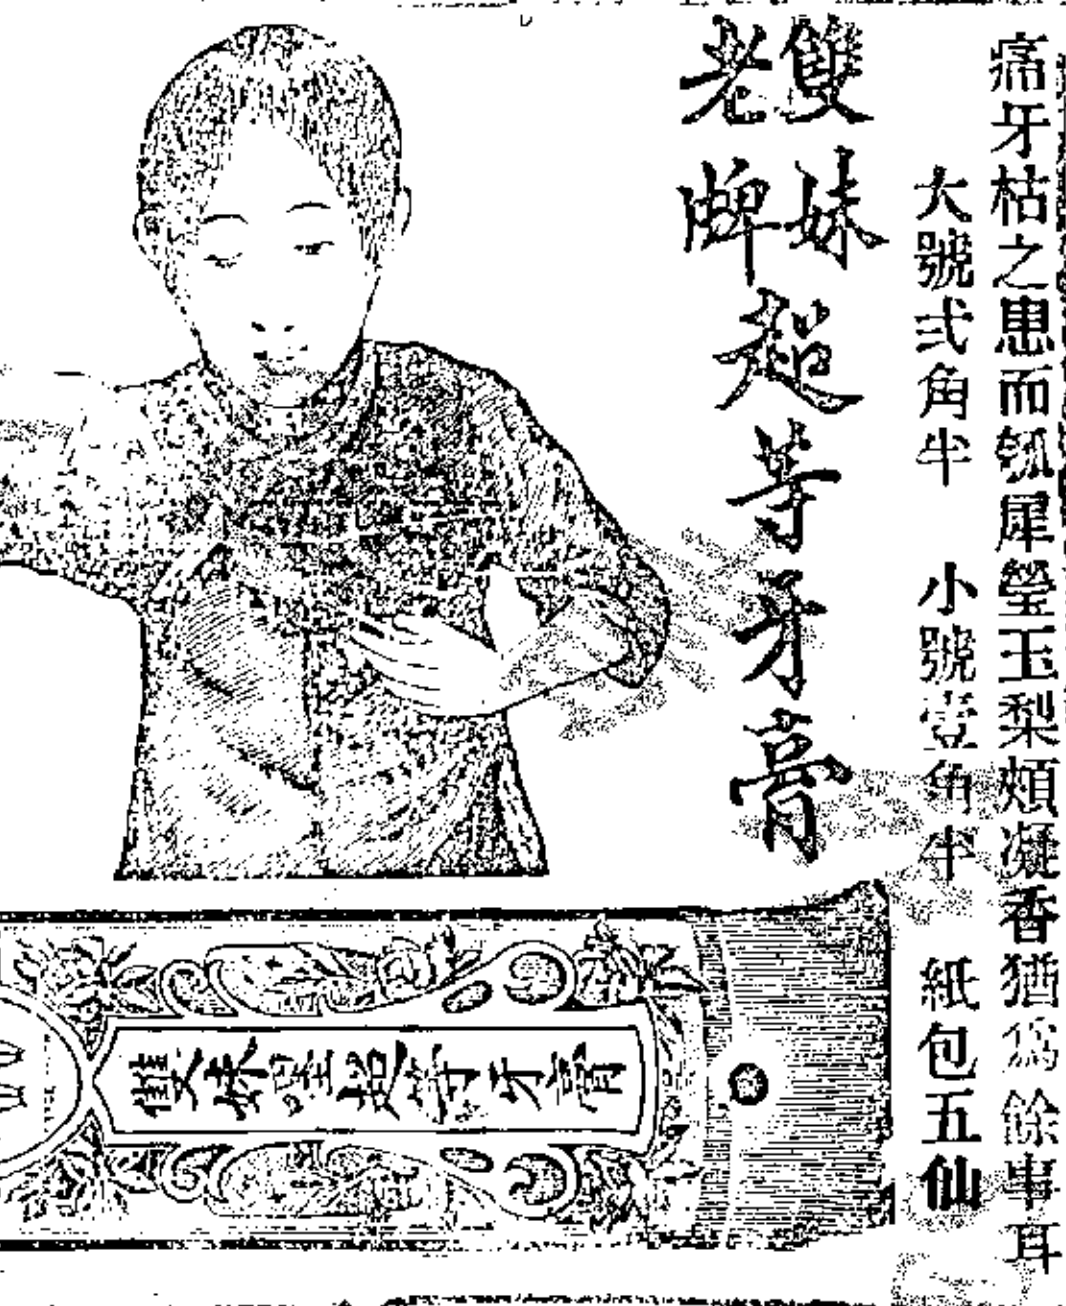 痛牙枯之患而瓠犀瑩玉梨頰凝香猶爲餘事耳
大號弍角半 小號壹角半 紙包五仙
雙妹
老牌
超等牙膏
雙妹嚜超等牙膏